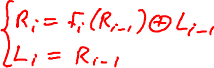 R_i = F_i(R_{i-1}) ⊕ L_{i-1}
L_i = R_{i-1}